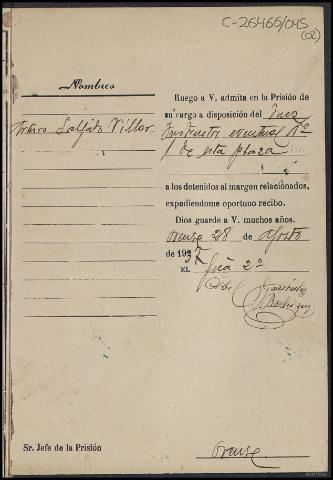 C-26466/045
(02)
Nombres
Arturo Salgado Villar
Ruego a V. admita en la Prisión de
su cargo a disposición del Juez
Instructor eventual Nº
1 de esta plaza
a los detenidos al margen relacionados,
expediendome oportuno recibo.
Dios guarde a V. muchos años.
Orense 28 de Agosto
de 1937
EL 2º
González
Sr. Jefe de la Prisión
Orense